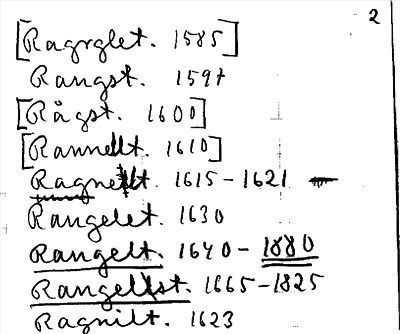 2
[Ragrglet. 1585]
Rangst. 1597
[Rågst. 1600]
[Rannellt. 1610]
Ragnellt. 1615-1621 —
Rangelet. 1630
Rangelt. 1640-1880
Rangellst. 1665-1825
Ragnilt. 1623